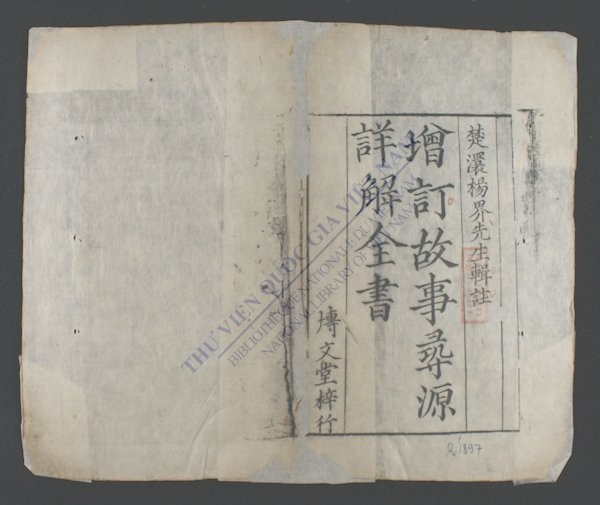 楚澴楊界先生輯註
增訂故事尋源
詳解全書
博文堂梓行
THƯ VIỆN QUỐC GIA VIỆT NAM
BIBLIOTHÈQUE NATIONALE DU VIETNAM
NATIONAL LIBRARY OF VIETNAM
R.1897